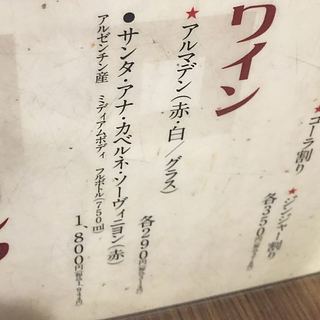 コーラ割り
★ジンジャー割り
各350円
ワイン
★アルマデン(赤・白/グラス)
各290円
●サンタ・アナ・カベルネ・ソーヴィニヨン(赤)
アルゼンチン産 ミディアムボディ フルボトル(750ml)
1,800円